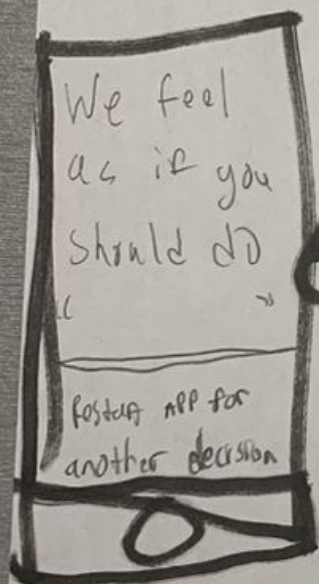 We feel
as if you
should do
"            "
Restart APP for
another decision